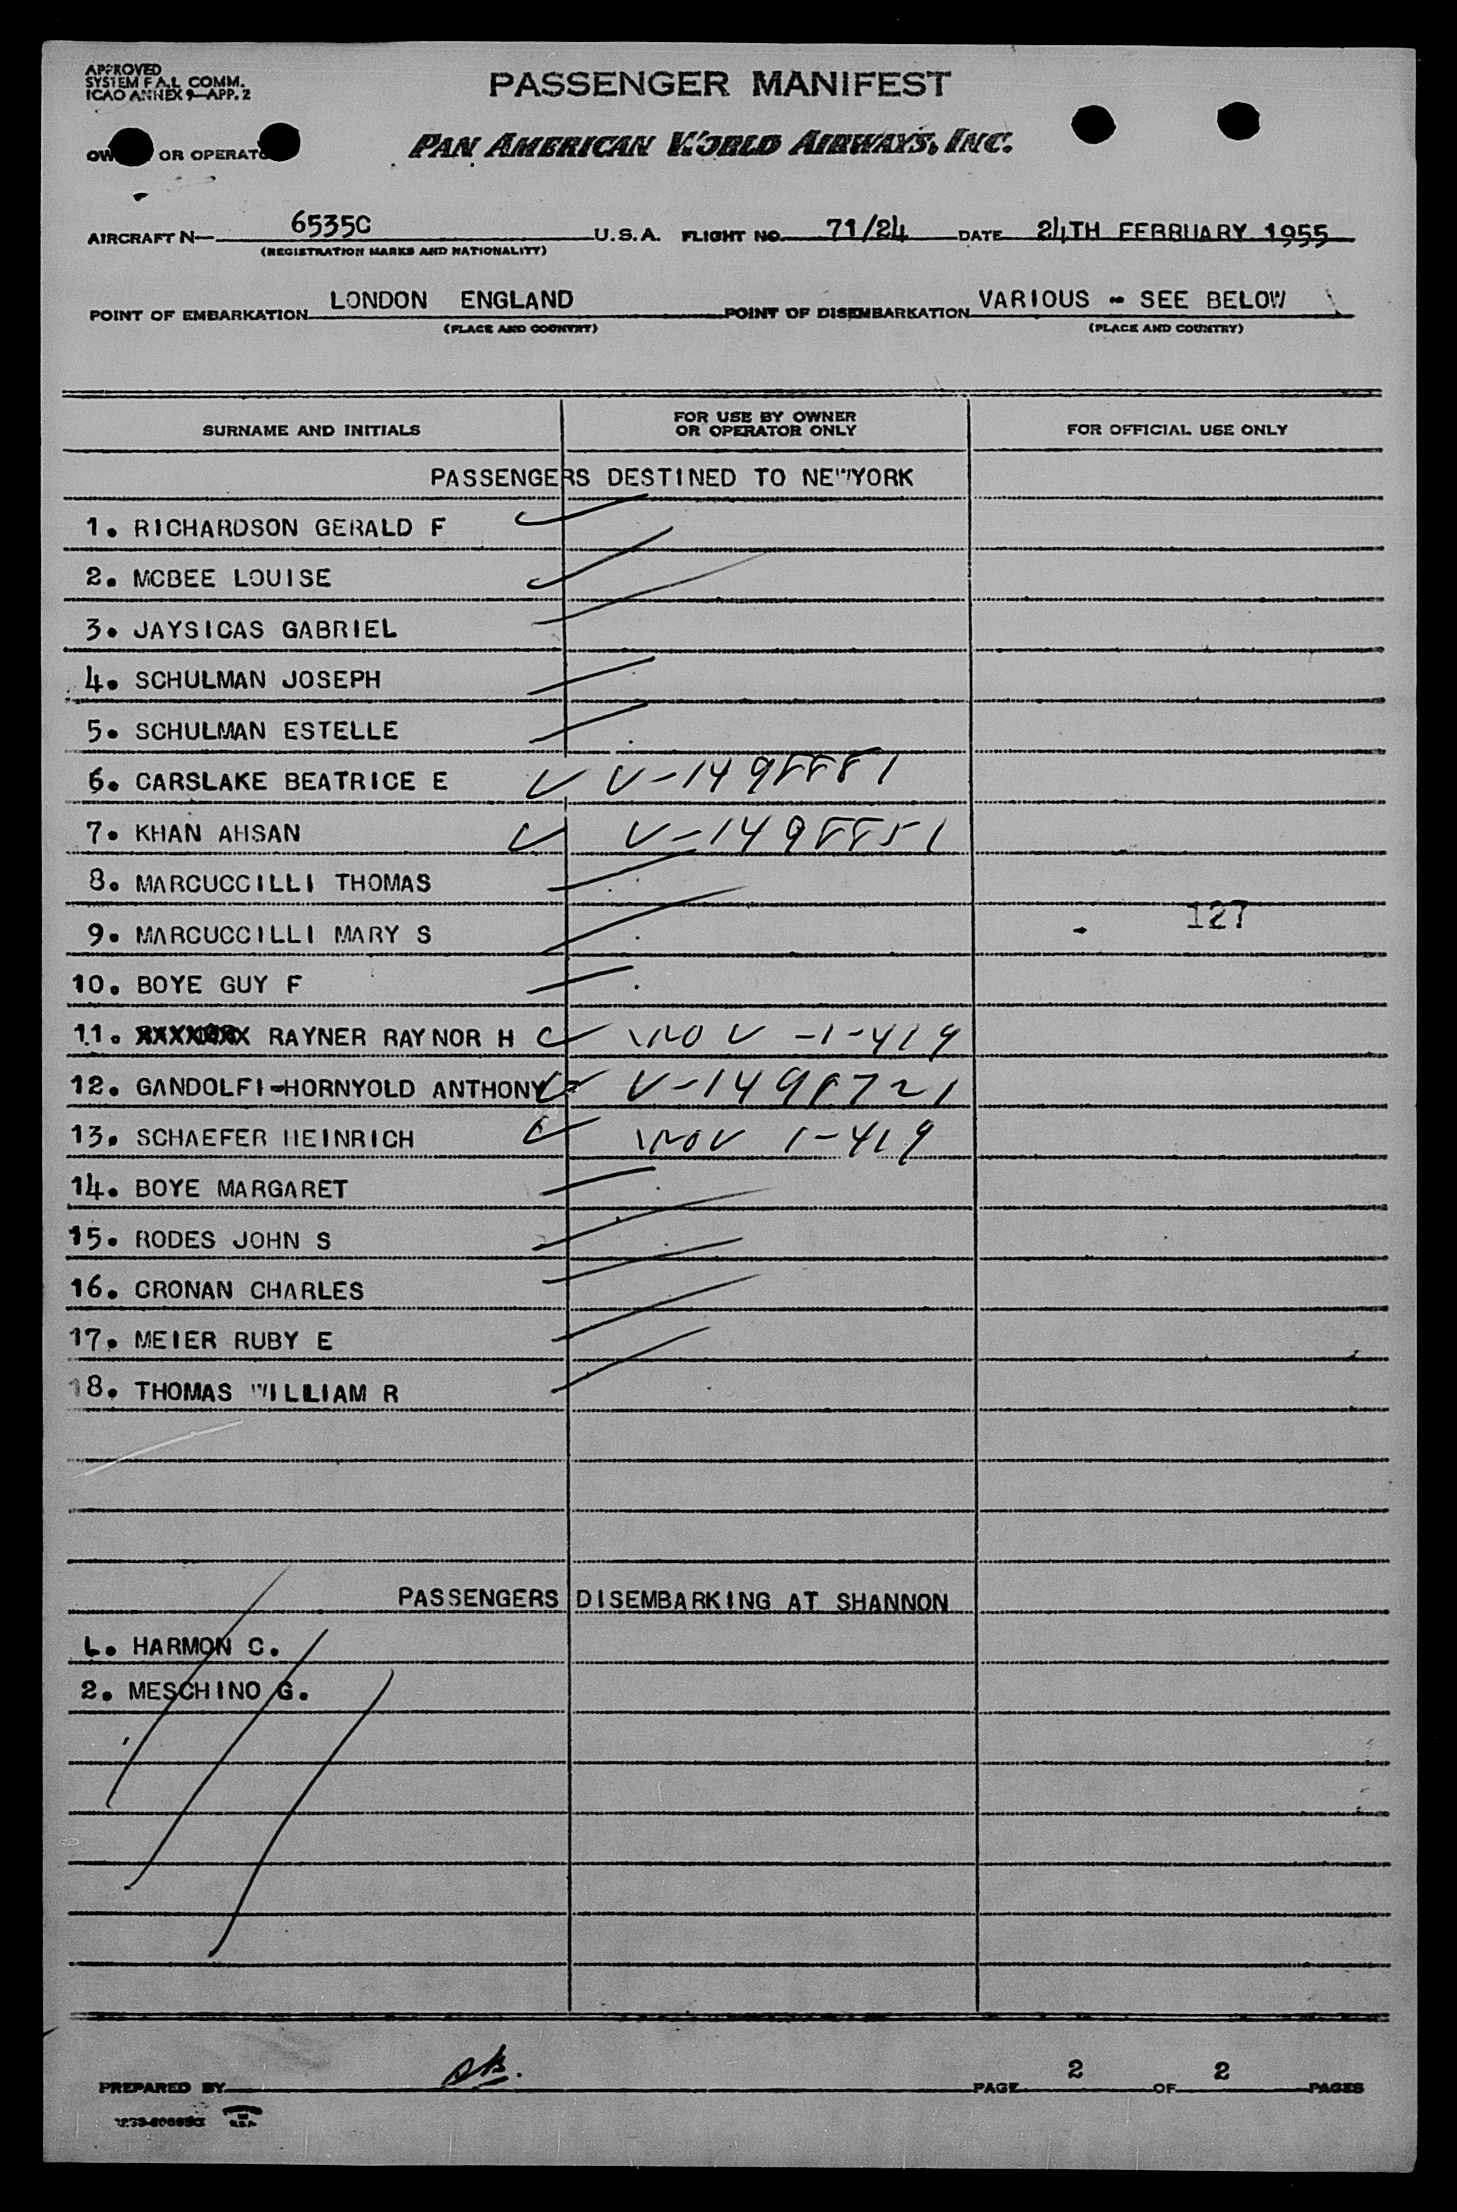 APPROVED
SYSTEM F.A.L. COMM.
ICAO ANNEX 9—APP. 2
PASSENGER MANIFEST
OR OPERATOR
PAN AMERICAN WORLD AIRWAYS, INC.
AIRCRAFT N— 6535C U.S.A. FLIGHT NO. 71/24 DATE 24TH FEBRUARY 1955
(REGISTRATION MARKS AND NATIONALITY)
POINT OF EMBARKATION LONDON ENGLAND POINT OF DISEMBARKATION VARIOUS - SEE BELOW
(PLACE AND COUNTRY) (PLACE AND COUNTRY)
SURNAME AND INITIALS FOR USE BY OWNER OR OPERATOR ONLY FOR OFFICIAL USE ONLY
PASSENGERS DESTINED TO NEWYORK
1. RICHARDSON GERALD F
2. MCBEE LOUISE
3. JAYSICAS GABRIEL
4. SCHULMAN JOSEPH
5. SCHULMAN ESTELLE
6. CARSLAKE BEATRICE E V-1498881
7. KHAN AHSAN V-1498851
8. MARCUCCILLI THOMAS
9. MARCUCCILLI MARY S 127
10. BOYE GUY F
11. RAYNER RAYNOR H V-1-419
12. GANDOLFI-HORNYOLD ANTHONY V-1498721
13. SCHAEFER HEINRICH 1-419
14. BOYE MARGARET
15. RODES JOHN S
16. CRONAN CHARLES
17. MEIER RUBY E
18. THOMAS WILLIAM R
PASSENGERS DISEMBARKING AT SHANNON
1. HARMON C.
2. MESCHINO G.
PREPARED BY PAGE 2 OF 2 PAGES